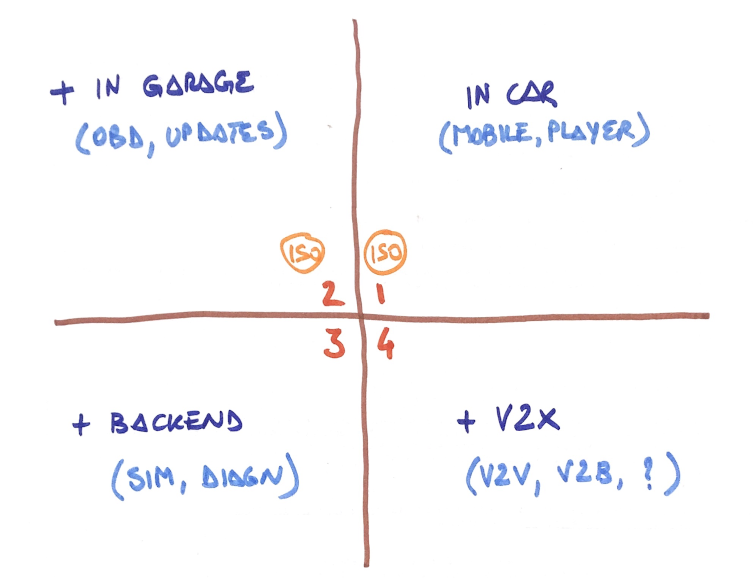 + IN GARAGE
(OBD, UPDATES)
IN CAR
(MOBILE, PLAYER)
ISO
ISO
2
1
3
4
+ BACKEND
(SIM, DIAGN)
+ V2X
(V2V, V2B, ?)